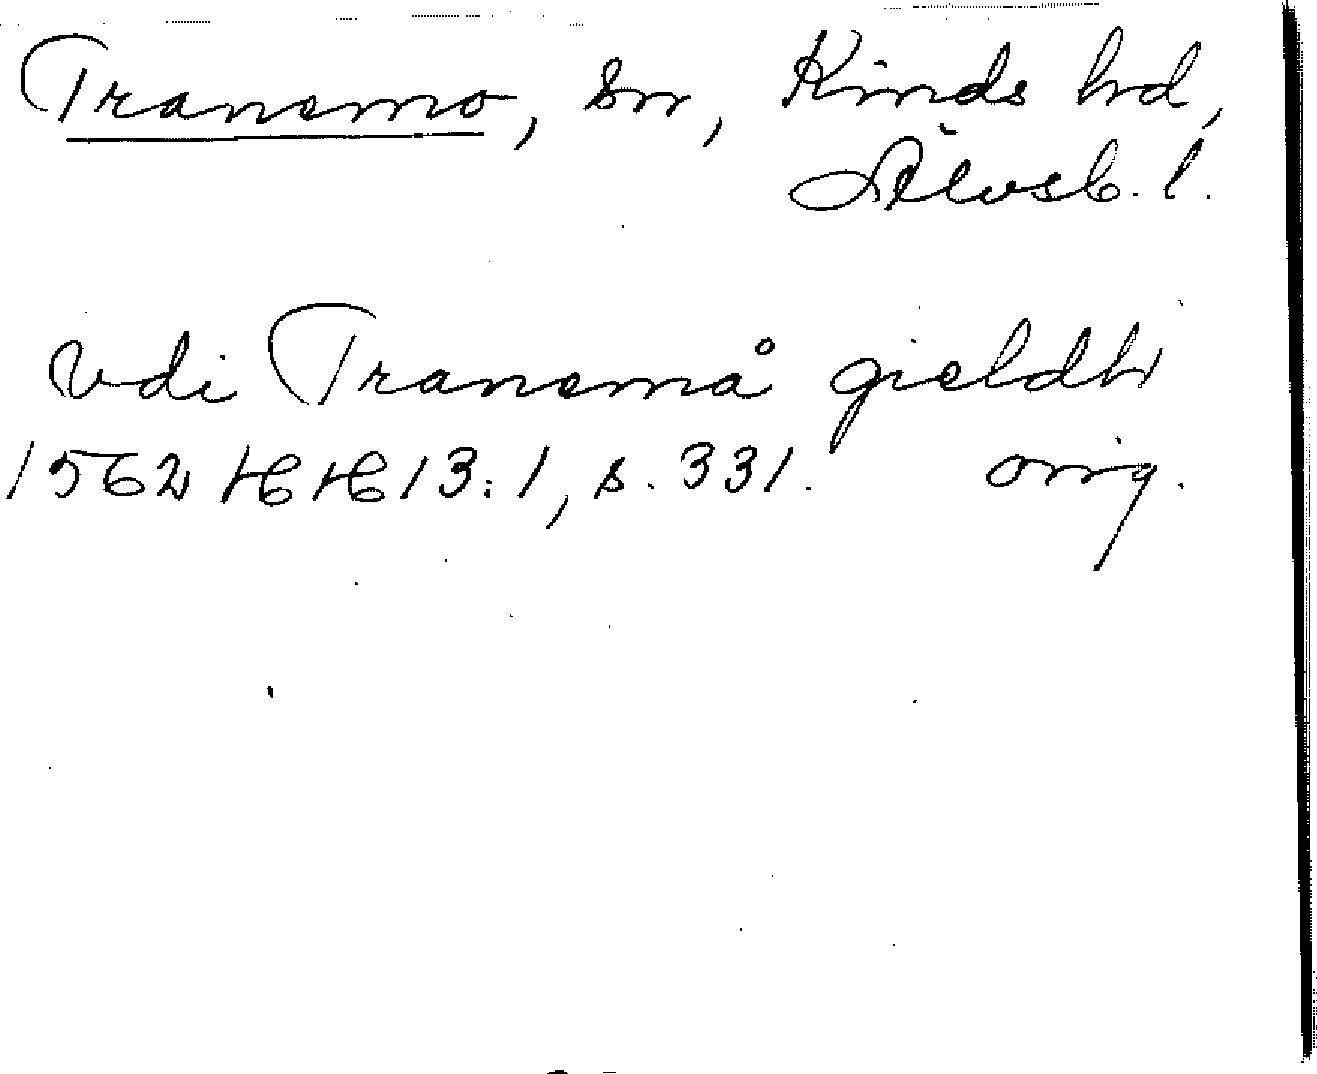 Tranemo, sn, Kinds hd,
Älvsb. l.
Vdi Tranemå gieldh
1562 HH 13:1, s. 331. orig.